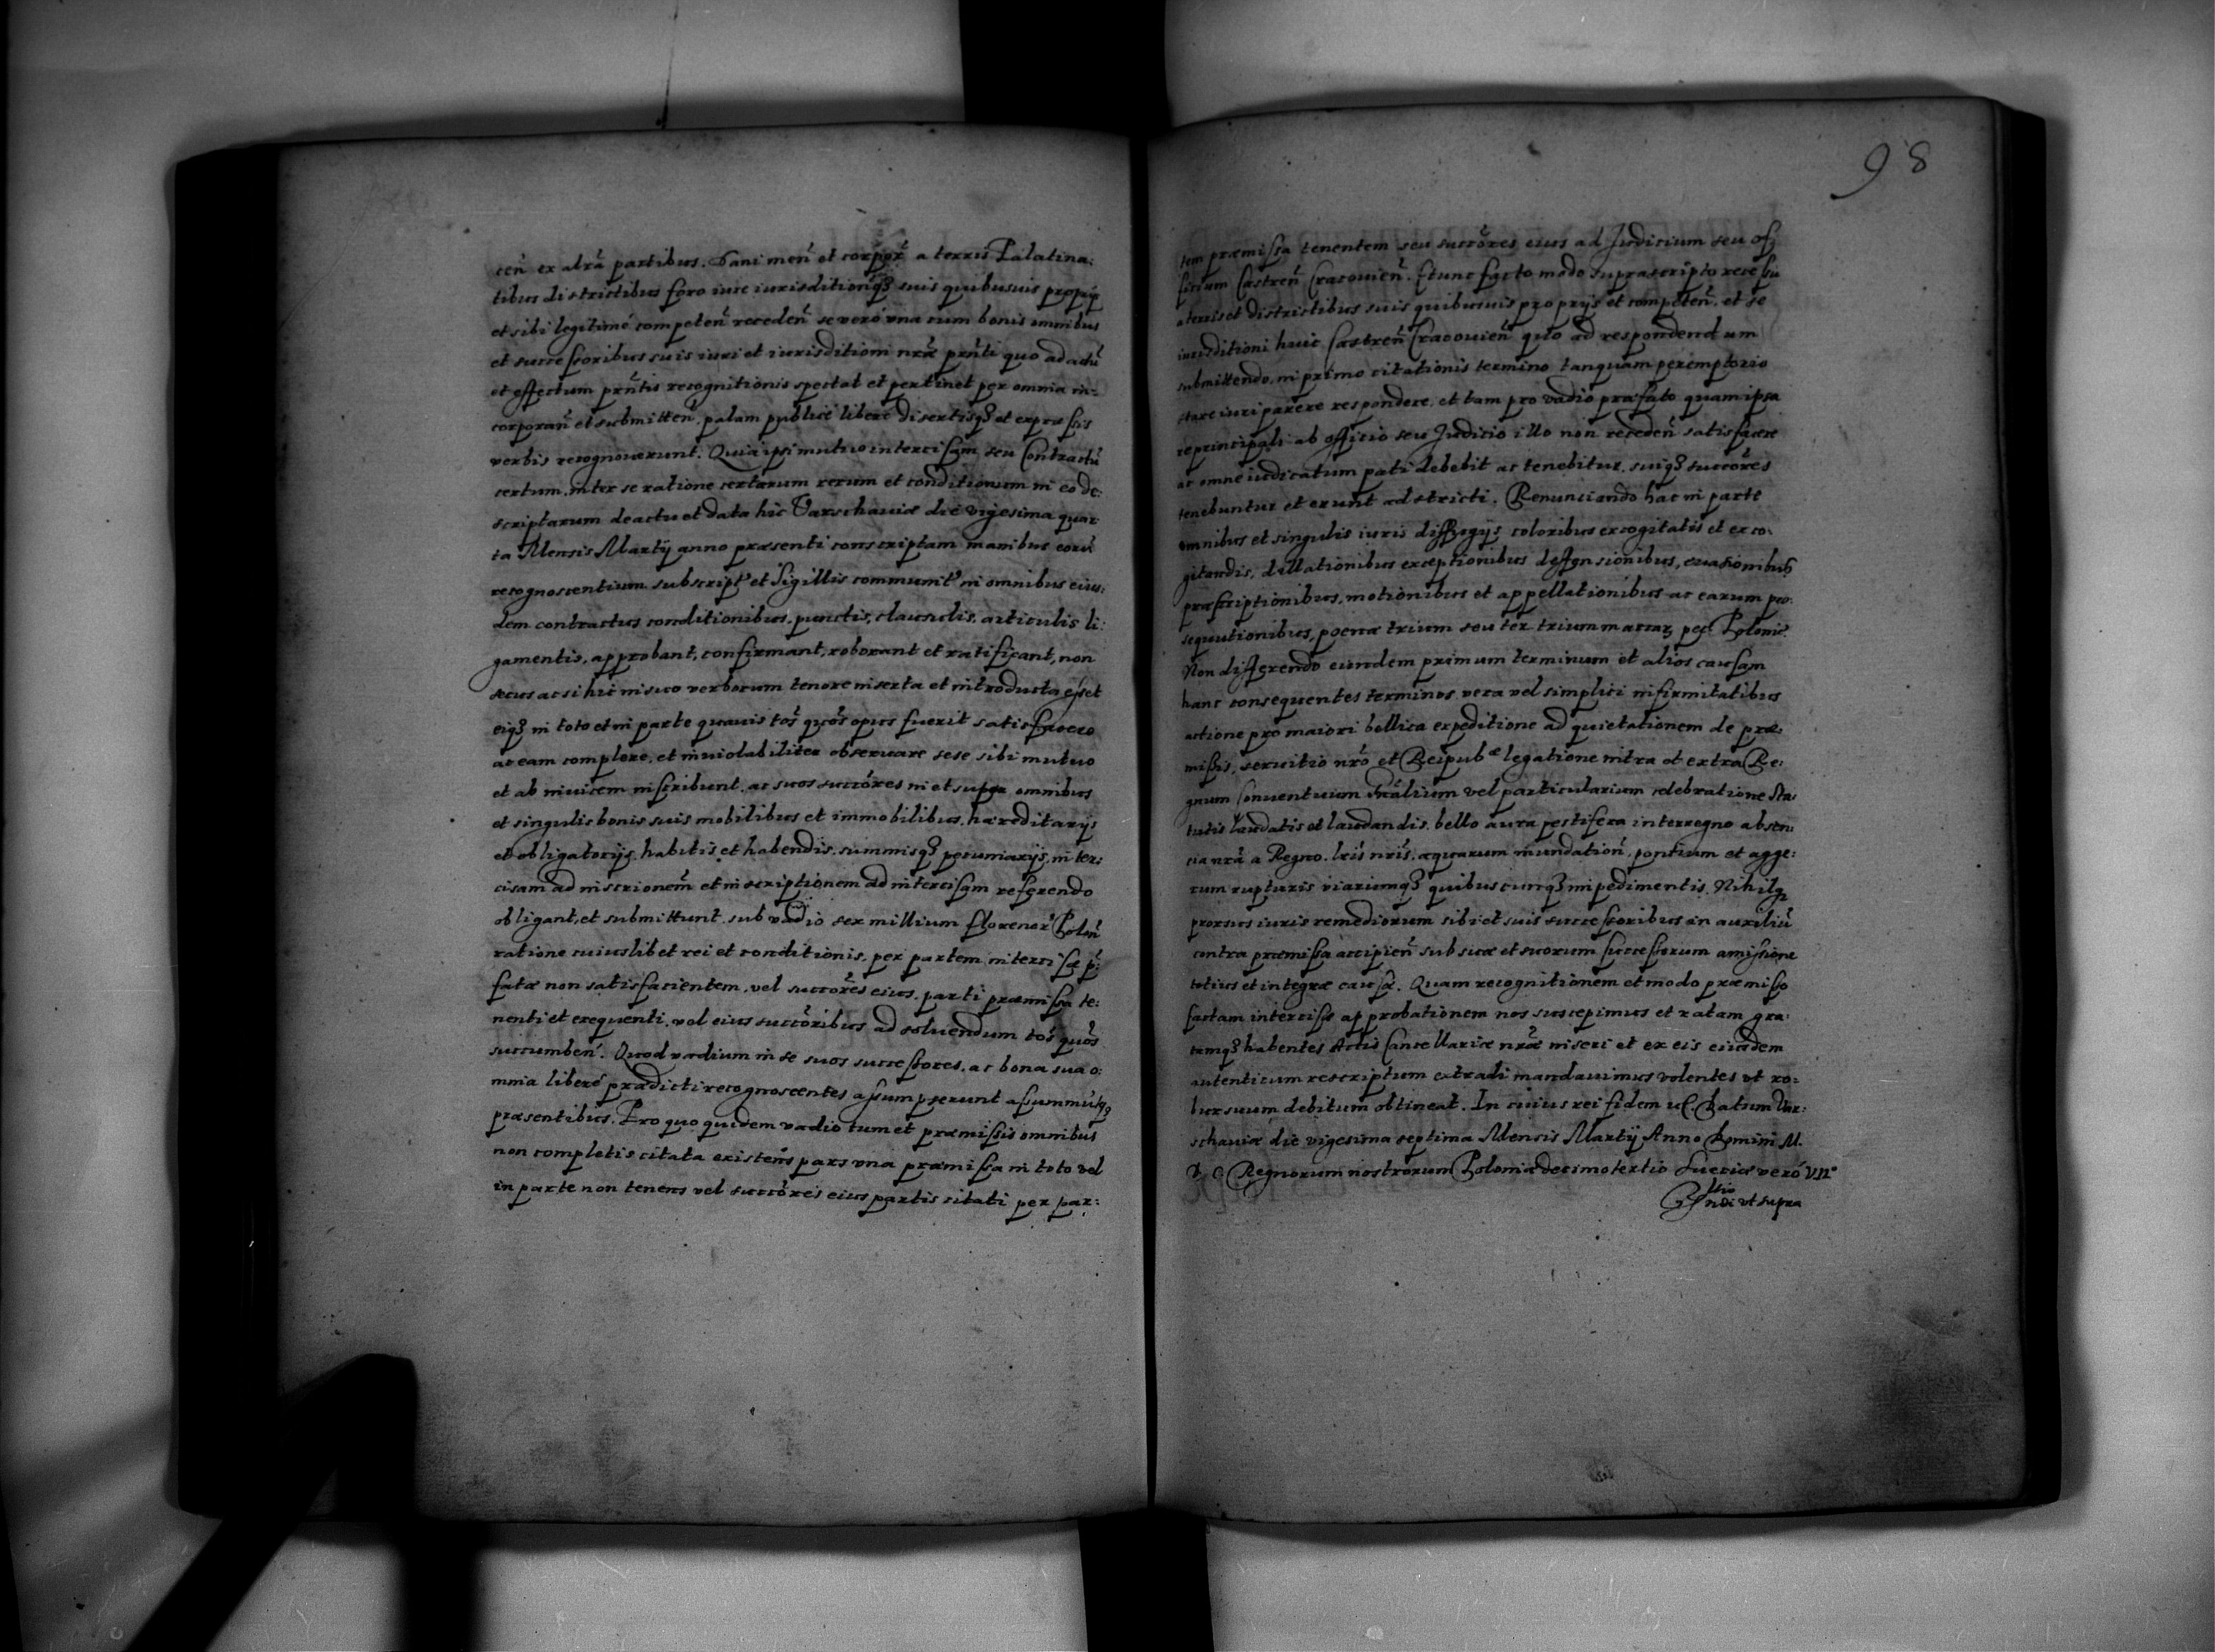 cen̄ ex altrā partibus. Sani men̄ et corpor̄ a terris Palatina:
tibus districtibus foro iure iurisditioniq3 suis quibusuis proprijs
et sibi legitimé competen̄ receden̄ se veró vna cum bonis omnibus
et successoribus suis iuri et iurisditioni nrãe prñti quo ad actũ
et effectum prñtis recognitionis spectat et pertinet per omnia in-
corporan̄ et submitten̄. palam publicé liberé disertisq3 et expressis
verbis recognouerunt. Quia ipsi mutuo intercisam seu Contractũ
certum, inter se ratione certarum rerum et conditionum in eo de:
scriptarum de actu et data hic Varschauiæ die vigesima quar
ta Mensis Martij anno præsenti conscriptam manibus eorũ
recognoscentium subscript' et Sigillis communit' in omnibus eius:
dem contractus conditionibus, punctis, clausulis, articulis li:
gamentis, approbant, confirmant, roborant et ratificant, non
secus ac si hic in suo verborum tenore inserta et introducta esset
eiq3 in toto et in parte quauis tos̃ quos̃ opus fuerit satisfacere
ac eam complere, et inuiolabiliter obseruare sese sibi mutuo
et ab inuicem inscribunt. ac suos succõres in et super omnibus
et singulis bonis suis mobilibus et immobilibus, hæreditarijs
et obligatorijs, habitis et habendis. summisq3 pecuniarijs, inter:
cisam ad inscrionem̃ et inscriptionem ad intercisam referendo
obligant, et submittunt. sub vadio sex millium florenor' Polon̄
ratione cuiuslibet rei et conditionis, per partem intercisæ p̄:
fatæ non satisfacientem, vel succõres eius, parti præmissa te:
nenti et exequenti, vel eius succõribus ad soluendum tos̃ quos̃
succumben̄. Quod vadium in se suos successores, ac bona sua o:
mnia liberé prædicti recognoscentes assumpserunt assummũtq3
præsentibus. Pro quo quidem vadio tum et præmissis omnibus
non completis citata existens pars vna præmissa in toto vel
in parte non tenens vel succõres eius partis citati per par:
98
tem præmissa tenentem seu succõres eius ad Judicium seu of
ficium Castren̄ Cracouien̄. Etunc facto modo suprascripto recessu
a terris et districtibus suis quibusuis proprijs et competen̄. et se
iurisditioni huic Castren̄ Cracouien̄ quo ad respondendum
submittendo, in primo citationis termino tanquam peremptorio
stare iuri parere respondere, et tam pro vadio præfato quam ipsa
re principali ab officio seu Judicio illo non receden̄ satisfacere
ac omne iudicatum pati debebit ac tenebitur, suiq3 succõres
tenebuntur et erunt adstricti. Renunciando hac in parte
omnibus et singulis iuris diffugijs coloribus excogitatis et exco:
gitandis, dillationibus exceptionibus deffensionibus, euasionibus
præscriptionibus, motionibus et appellationibus ac earum pro:
sequutionibus, poenæ trium seu ter trium marcar, pec. Polonic̃.
Non differendo eundem primum terminum et alios causam
hanc consequentes terminos vera vel simplici infirmitatibus
actione pro maiori bellica expeditione ad quietationem de præ:
missis, seruitio nrõ et Reipubᵃᵉ legatione intra et extra Re:
gnum Conuentuum Gnãlium vel particularium celebratione Sta:
tutis laudatis et laudandis, bello aura pestifera interregno absen:
cia nrã a Regno. lris̃ nris̃. aquarum inundation̄. pontium et agge:
rum rupturis viarumq3 quibuscunq3 impedimentis. Nihilq3
prorsus iuris remediorum sibi et suis successoribus in auxiliũ
contra præmissa accipien̄ sub suæ et suorum successorum amissione
totius et integræ causæ. Quam recognitionem et modo præmisso
factam intercisæ approbationem nos suscepimus et ratam gra:
tamq3 habentes Actis Cancellariæ nrãe inseri et ex eis eiusdem
autenticum rescriptum extradi mandauimus volentes vt ro:
bur suum debitum obtineat. In cuius rei fidem uc̃. Datum Var:
schauiæ die vigesima septima Mensis Martij Anno Domini M.
D. C Regnorum nostrorum Poloniæ decimo tertio Sueciæ veró VII°
vt supra